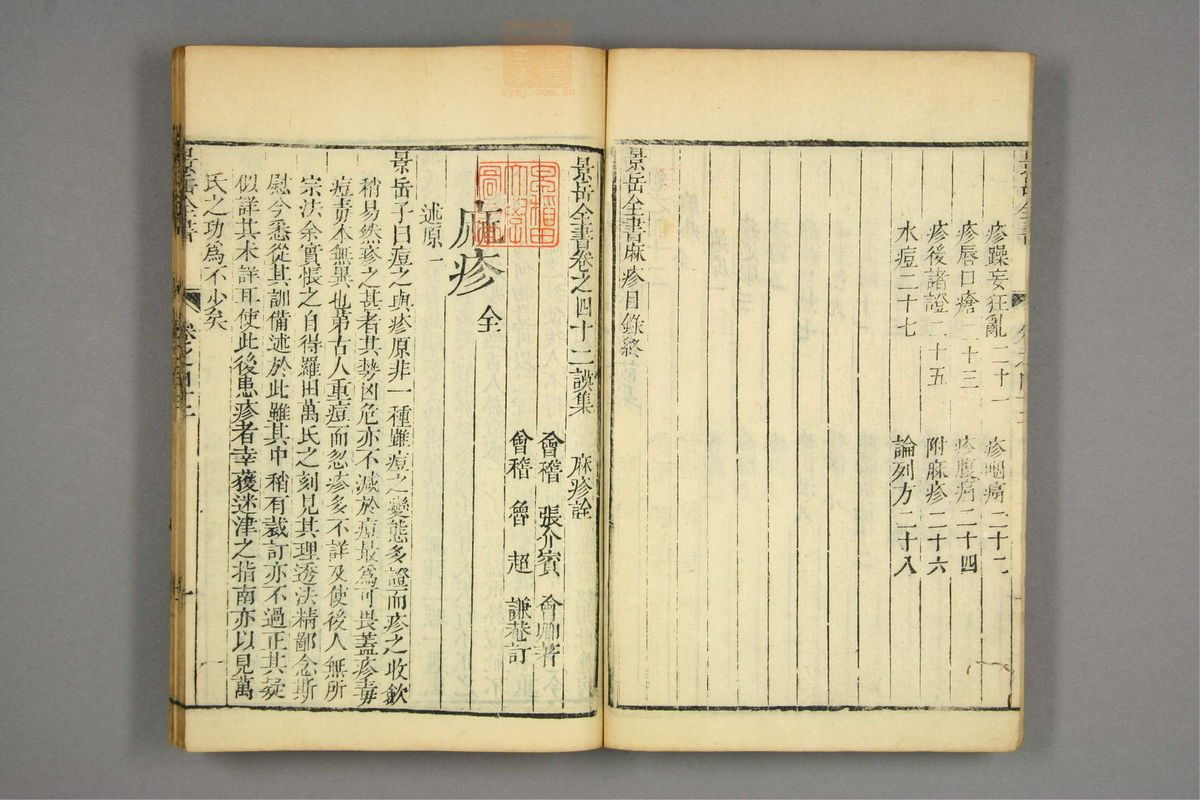 疹躁妄狂亂二十一 疹咽痛二十二
疹唇口瘡二十三 疹腹痛二十四
疹後諸證二十五 附麻疹二十六
水痘二十七 論列方二十八
景岳全書麻疹目錄終
景岳全書卷之四十二謨集 麻疹詮
會稽 張介賓 會卿著
會稽 魯超 謙菴訂
麻疹 全
述原一
景岳子曰痘之與疹原非一種雖痘之變態多證而疹之收斂
稍易然疹之甚者其勢凶危亦不減於痘最為可畏蓋疹毒
痘毒本無異也第古人重痘而忽疹多不詳及使後人無所
宗法余實悵之自得羅田萬氏之刻見其理透法精鄙念斯
慰今悉從其訓備述於此雖其中稍有裁訂亦不過正其疑
似詳其未詳耳使此後患疹者幸獲迷津之指南亦以見萬
氏之功為不少矣
景岳全書
卷之四十二
zysj.com.cn